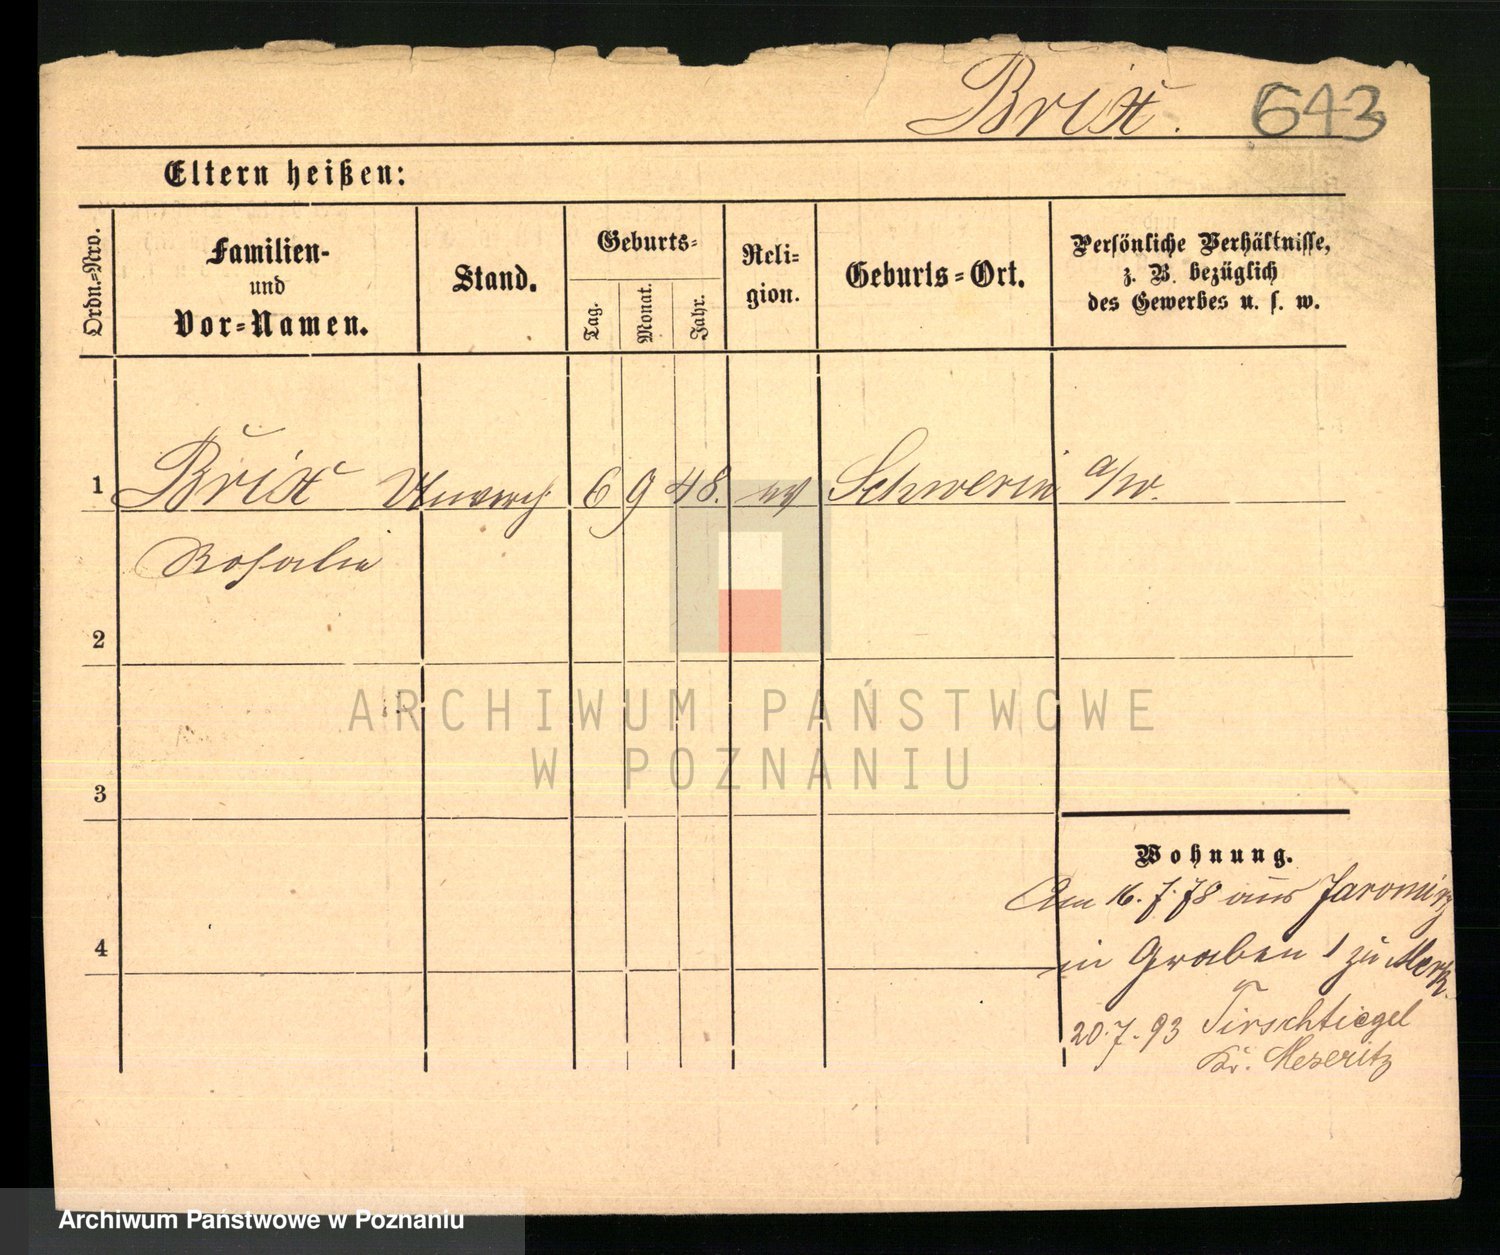 Brix. 643
Eltern heißen:
Ordn.=Nro.
Familien-
und
Vor=Namen.
Stand.
Geburts=
Tag.
Monat.
Jahr.
Reli=
gion.
Geburts=Ort.
Persönliche Verhältnisse,
z. B. bezüglich
des Gewerbes u. s. w.
1 Brix Unverh. 6 9 48. ev Schwerin a/w.
Rosalie
2
ARCHIWUM PAŃSTWOWE
W POZNANIU
3
Wohnung.
Am 16. 7. 78 aus Jaromirz
4 in Graben 1 zu Merk
20.7.93 Tirschtiegel
Kr. Meseritz
Archiwum Państwowe w Poznaniu